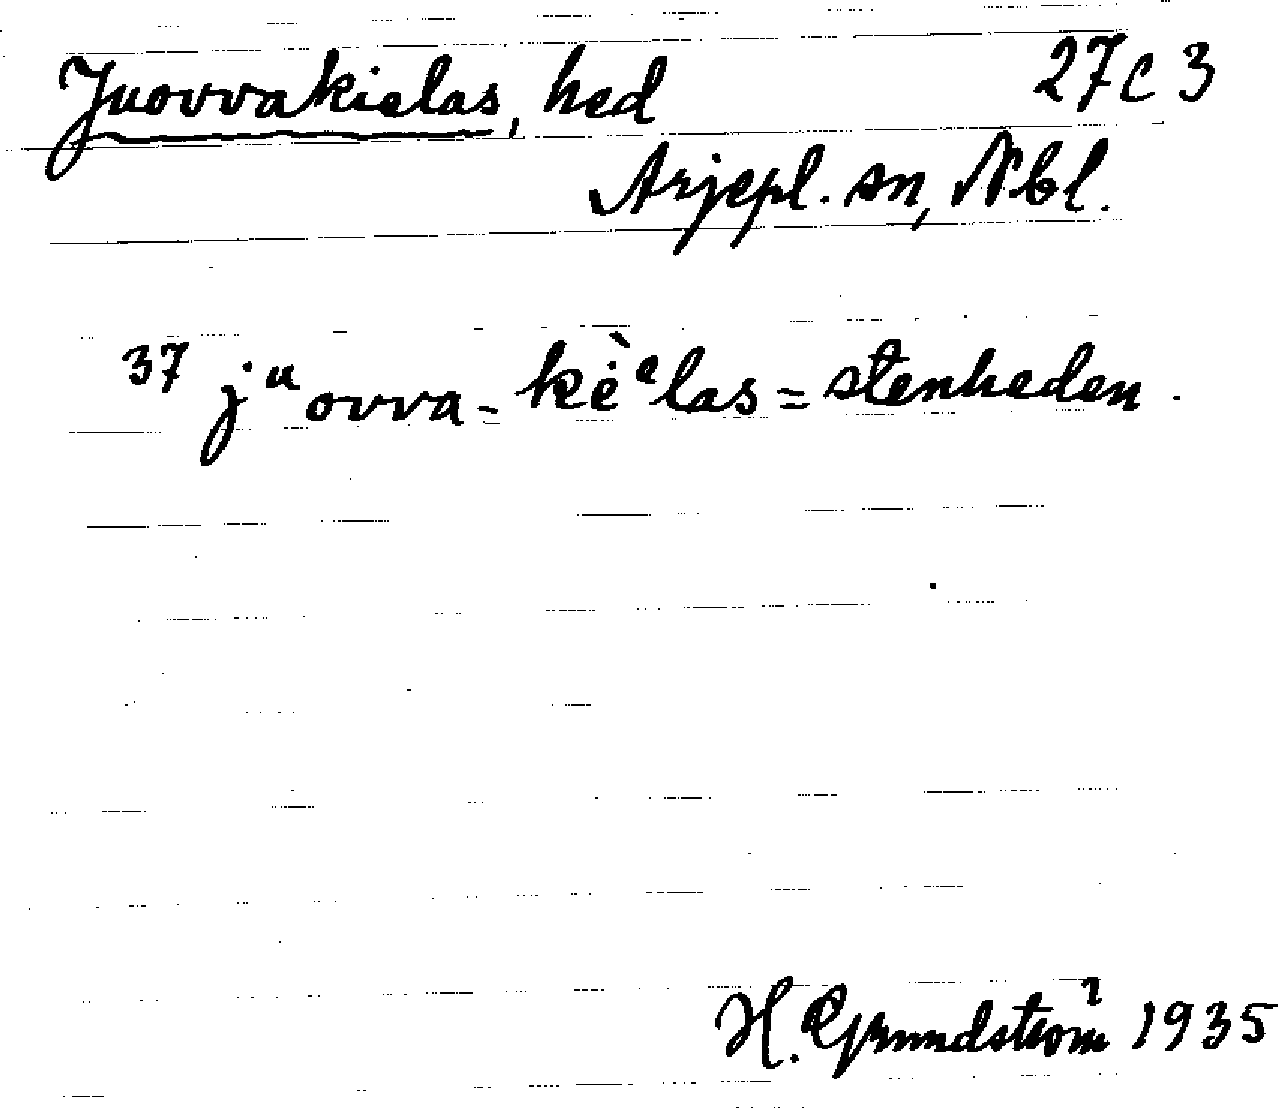 Juovvakielas, hed 27c3
Arjepl. sn, Nbl.
37 jᵘovva-kė̀ᵉlas = stenheden.
H. Grundström 1935